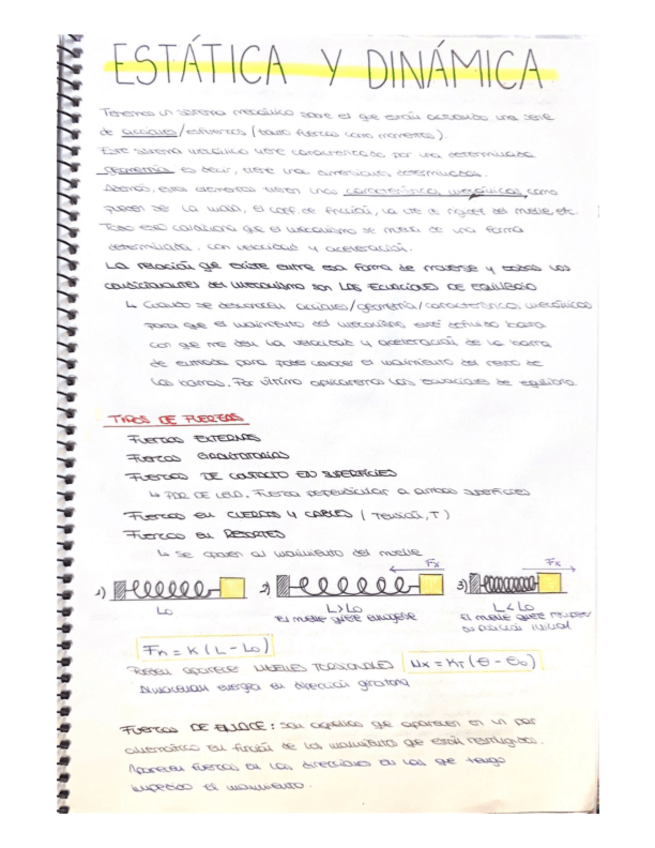 ESTÁTICA Y DINÁMICA
Tenemos un sistema mecánico sobre el que están actuando una serie
de acciones/esfuerzos (tanto fuerzas como momentos).
Este sistema mecánico viene caracterizado por una determinada
geometría es decir, tiene una dimensión determinadas.
Además, esos elementos tienen unas características mecánicas, como
pueden ser la masa, el coef. de fricción, la cte de rigidez del muelle, etc.
Todo eso condiciona que el mecanismo se mueva de una forma
determinada. con velocidad y aceleración.
La relación que existe entre esa forma de moverse y todos los
condicionantes del mecanismo son LAS ECUACIONES DE EQUILIBRIO
↳ Cuando se desconocen acciones/geometría/característica, mecánicas
para que el movimiento del mecanismo esté definido basta
con que me den la velocidad y aceleración de la barra
de entrada para poder conocer el movimiento del resto de
las barras. Por último aplicaremos las ecuaciones de equilibrio.
TIPOS DE FUERZAS
FUERZAS EXTERNAS
FUERZAS GRAVITATORIAS
FUERZAS DE CONTACTO EN SUPERFICIES
↳ PAR DE LEVA. Fuerza perpendicular a ambas superficies
FUERZAS EN CUERDAS Y CABLES (TENSIÓN, T)
FUERZAS EN RESORTES
↳ Se oponen al movimiento del muelle
Fx Fx
1) 2) 3)
L0 L>L0 L<L0
El muelle quiere encogerse El muelle quiere recuperar
su posición inicial
Fn = K (L - L0)
Pueden aparecer MUELLES TORSIONALES Mx = KT (θ - θ0)
Almacenan energía en dirección giratoria
FUERZAS DE ENLACE: Son aquellas que aparecen en un par
cinemático en función de los movimientos que están restringidos.
Aparecen fuerzas en las direcciones en las que tengo
impedido el movimiento.